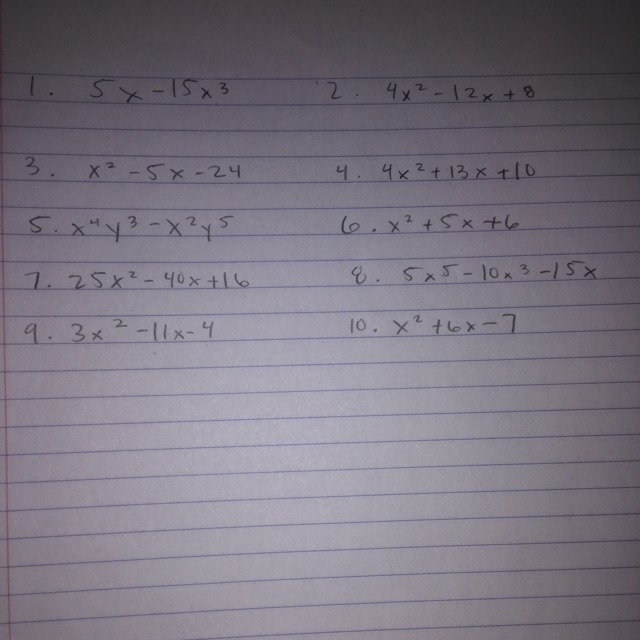 1. 5x - 15x³ 2. 4x² - 12x + 8
3. x² - 5x - 24 4. 4x² + 13x + 10
5. x⁴y³ - x²y⁵ 6. x² + 5x + 6
7. 25x² - 40x + 16 8. 5x⁵ - 10x³ - 15x
9. 3x² - 11x - 4 10. x² + 6x - 7